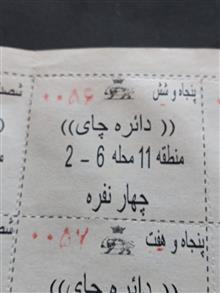 پنجاه و شش ۰۰۵۶
(( دائره چای))
منطقه 11 محله 6 – 2
چهار نفره
پنجاه و هفت ۰۰۵۷
(( دائره چای))